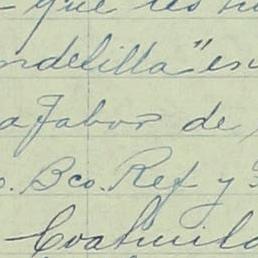 - que les
ndelilla" en
a Jabor de
. Bco. Ref y
- Coahuila